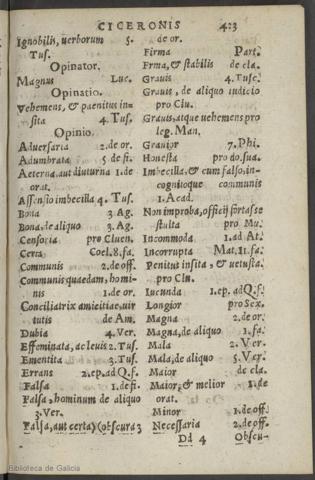 CICERONIS 423
Ignobilis, uerborum 5.
Tus.
Opinator.
Magnus Luc.
Opinatio.
Vehemens, & paenitus in-
sita 4. Tus.
Opinio.
Aduersaria 2. de or.
Adumbrata 5 de fi.
Aeterna, aut diuturna 1. de
orat.
Assensio imbecilla 4. Tus.
Bona 3. Ag.
Bona, de aliquo 3. Ag.
Censoria pro Cluen.
Certa Coel. 8. fa.
Communis 2. de off.
Communis quaedam, homi-
nis 1. de or.
Conciliatrix amicitiae, uir
tutis de Am.
Dubia 4. Ver.
Effeminata, ac leuis 2. Tus.
Ementita 3. Tus.
Errans 2. ep. ad Q. f.
Falsa 1. de fi.
Falsa, hominum de aliquo
3. Ver.
Falsa, aut certa) (obscura 3
de or.
Firma Part.
Frma, & stabilis de cla.
Grauis 4. Tusc.
Grauis, de aliquo iudicio
pro Clu.
Grauis, atque uehemens pro
leg. Man.
Grauior 7. Phi.
Honesta pro do. sua.
Imbecilla, & cum falso, in-
cognitoque communis
1. Acad.
Non improba, officij fortasse
stulta pro Mu.
Incommoda 1. ad At.
Incorrupta Mat. 11. fa.
Penitus insita, & uetusta.
pro Clu.
Iucunda 1. ep. ad Q. f.
Longior pro Sex.
Magna 2. de or.
Magna, de aliquo 1. fa.
Mala 2. Ver.
Mala, de aliquo 5. Ver.
Maior de cla.
Maior, & melior 1. de
orat.
Minor 1. de off.
Necessaria 2. de off.
Dd 4 Obscu-
Biblioteca de Galicia